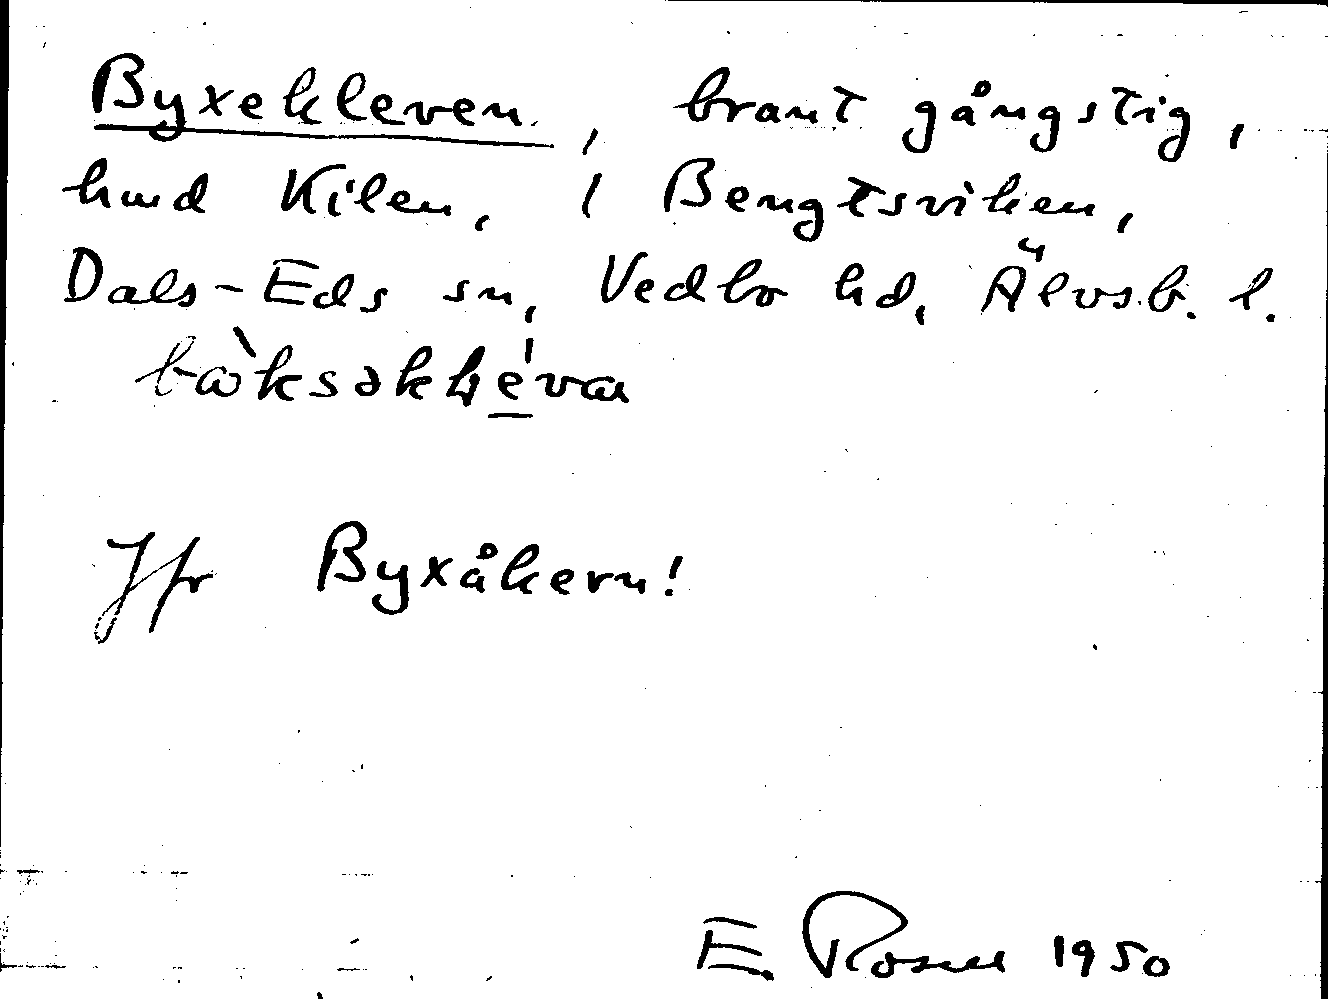 Byxekleven, brant gångstig,
hmd Kilen, i Bengtsviken,
Dals-Eds sn, Vedbo hd, Älvsb. l.
Jfr Byxåkern!
E. Rosell 1950